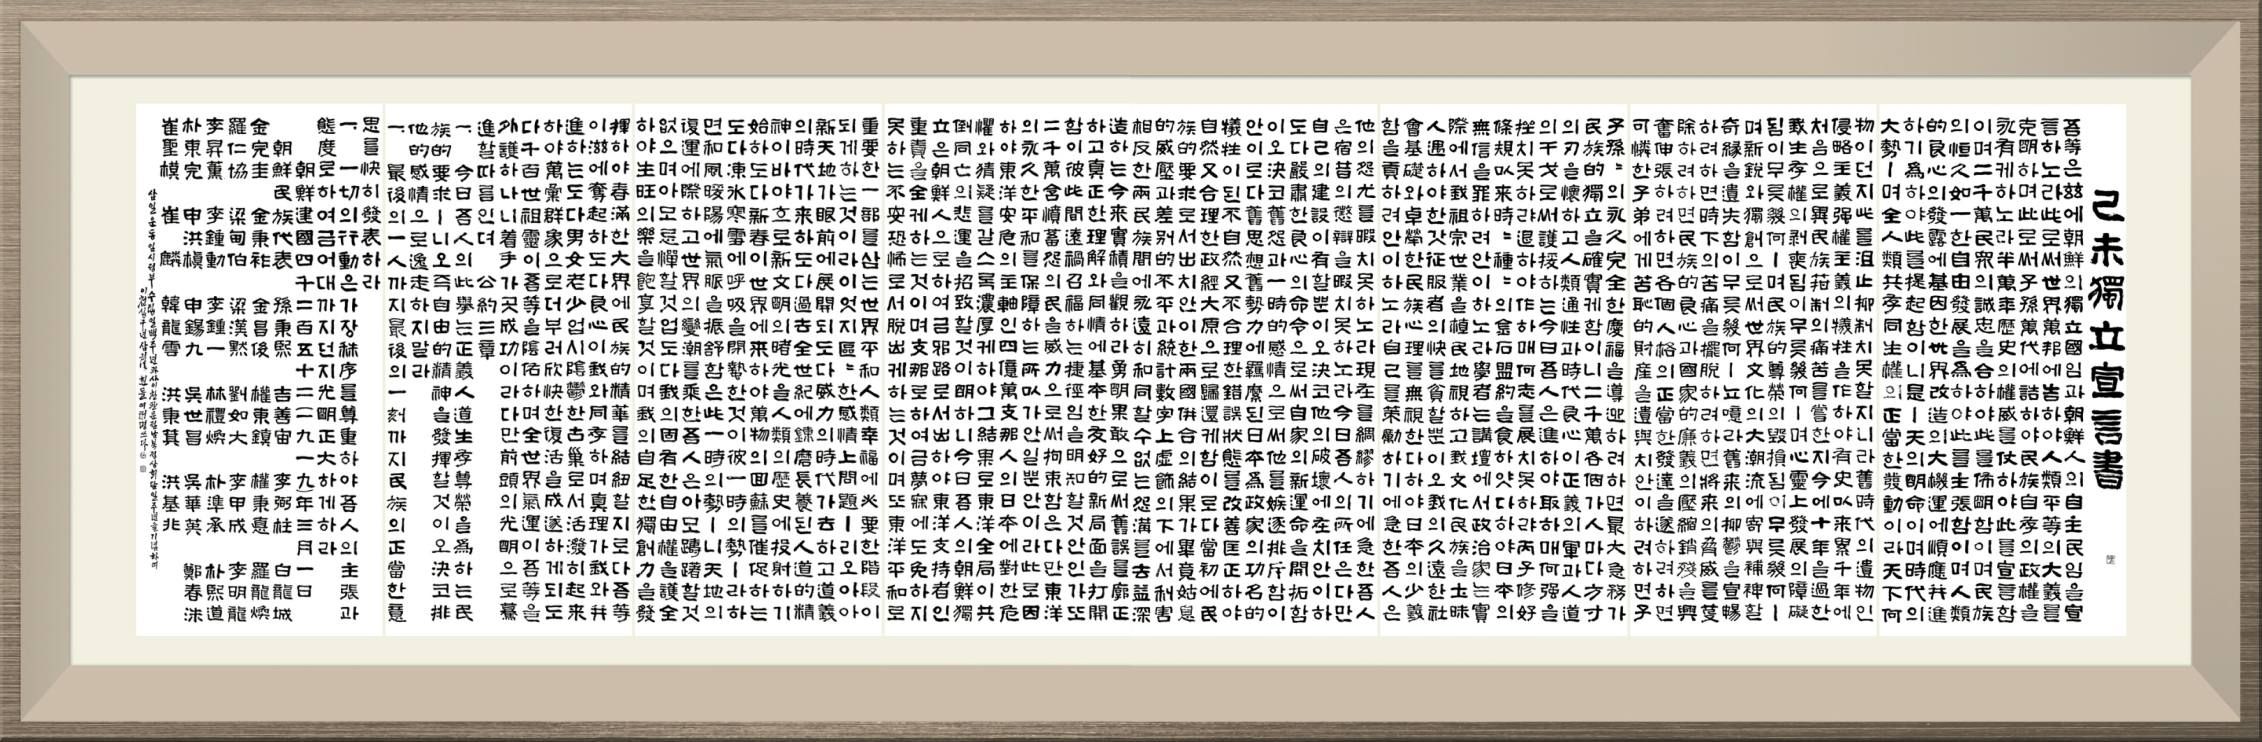 己未獨立宣言書
吾等은玆에朝鮮의獨立國임과朝鮮人의自主民임을宣
言하노라此로써世界萬邦에告하야人類平等의大義를
克明하며此로써子孫萬代에誥하야民族自存의政權을
永有케하노라半萬年歷史의權威를仗하야此를宣言함
이며二千萬民衆의誠忠을合하야此를佈明함이며民族
의恒久如一한自由發展을爲하야此를主張함이며人類
的良心의發露에基因한世界改造의大機運에順應幷進
하기爲하야此를提起함이니是ㅣ天의明命이며時代의
大勢ㅣ며全人類共存同生權의正當한發動이라天下何
物이던지此를沮止抑制치못할지니라舊時代의遺物인
侵略主義强權主義의犧牲을作하야有史以來累千年에
처음으로異民族箝制의痛苦를嘗한지今에十年을過한
我生存權의剝喪됨이무릇幾何ㅣ며心靈上發展의障礙
됨이무릇幾何ㅣ며民族的尊榮의毁損됨이무릇幾何ㅣ
며新銳와獨創으로써世界文化의大潮流에寄與補裨할
奇緣을遺失함이무릇幾何ㅣ뇨噫라舊來의抑鬱을宣暢
하려하면時下의苦痛을擺脫하려하면將來의脅威를芟
除하려하면民族的良心과國家的廉義의壓縮銷殘을興
奮伸張하려하면各個人格의正當한發達을遂하려하면
可憐한子弟에게苦恥的財産을遺與치안이하려하면子
子孫孫의永久完全한慶福을導迎하려하면最大急務가
民族的獨立을確實케함이니二千萬各個가人마다方寸
의刃을懷하고人類通性과時代良心이正義의軍과人道
의干戈로써護援하는今日吾人은進하야取하매何强을
挫치못하랴退하야作하매何志를展치못하랴丙子修好
條規以來時〻種〻의金石盟約을食하얏다하야日本의
無信을罪하려안이하노라學者는講壇에서政治家는實
際에서我祖宗世業을植民地視하고我文化民族을土昧
人遇하야한갓征服者의快를貪할뿐이오我의久遠한社
會基礎와卓犖한民族心理를無視한다하야日本의少義
함을責하려안이하노라自己를策勵하기에急한吾人은
他의怨尤를暇치못하노라現在를綢繆하기에急한吾人
은宿昔의懲辯을暇치못하노라今日吾人의所任은다만
自己의建設이有할뿐이오決코他의破壞에在치안이하
도다嚴肅한良心의命令으로써自家의新運命을開拓함
이오決코舊怨과一時的感情으로써他를嫉逐排斥함이
안이로다舊思想舊勢力에羈縻된日本爲政家의功名的
犧牲이된不自然又不合理한錯誤狀態를改善匡正하야
自然又合理한政經大原으로歸還케함이로다當初에民
族的要求로서出치안이한兩國倂合의結果가畢竟姑息
的威壓과差別的不平과統計數字上虛飾의下에서利害
相反한兩民族間에永遠히和同할수없는怨溝를去益深
造하는今來實績을觀하라勇明果敢으로써舊誤를廓正
하고眞正한理解와同情에基本한友好的新局面을打開
함이彼此間遠禍召福하는捷徑임을明知할것안인가또
二千萬含憤蓄怨의民을威力으로써拘束함은다만東洋
의永久한平和를保障하는所以가안일뿐안이라此로因
하야東洋安危의主軸인四億萬支那人의日本에對한危
懼와猜疑를갈스록濃厚케하야그結果로東洋全局이共
倒同亡의悲運을招致할것이明하니今日吾人의朝鮮獨
立은朝鮮人으로하여금邪路로서出하야東洋支持者인
重責을全케하는것이며하여금夢寐에도免하지
못하는不安恐怖로서脫出케하는것이며또東洋平和로
重要한一部를삼는世界平和人類幸福에必要한階段이
되게하는것이라이엇지區〻한感情上問題ㅣ리오아아
新天地가眼前에展開되도다威力의時代가去하고道義
의時代가來하도다過去全世紀에鍊磨長養된人道的精
神이바야흐로新文明의曙光을人類의歷史에投射하기
始하도다新春이世界에來하야萬物의回蘇를催促하는
도다凍氷寒雪에呼吸을閉蟄한것이彼一時의勢ㅣ라하
면和風暖陽에氣脈을振舒함은此一時의勢ㅣ니天地의
復運에際하고世界의變潮를乘한吾人은아모躊躇할것
없으며아모忌憚할것없도다我의固有한自由權을護全
하야生旺의樂을飽享할것이며我의自足한獨創力을發
揮하야春滿한大界에民族的精華를結紐할지로다吾等
이滋에奮起하도다良心이我와同存하며眞理가我와幷
進하는도다男女老少업시陰鬱한古巢로서活潑히起來
하야萬彙群象으로더부러欣快한復活을成遂하게되도
다千百世祖靈이吾等을陰佑하며全世界氣運이吾等을
外護하나니着手가곳成功이라다만前頭의光明으로驀
進할따름인뎌 公約三章
一. 今日吾人의此擧는正義人道生存尊榮을爲하는民
族的要求ㅣ니오즉自由的精神을發揮할것이오決코排
他的感情으로逸走하지말라
一. 最後의一人까지最後의一刻까지民族의正當한意
思를快히發表하라
一. 一切의行動은가장秩序를尊重하야吾人의主張과
態度로하여금어대까지던지光明正大하게하라
朝鮮建國四千二百五十二年三月一日
朝鮮民族代表 孫秉熙 吉善宙 李弼柱 白龍城
金完圭 金秉祚 金昌俊 權東鎭 權秉悳 羅龍煥
羅仁協 梁甸伯 梁漢默 劉如大 李甲成 李明龍
李昇薰 李鍾勳 李鍾一 林禮煥 朴準承 朴熙道
朴東完 申洪植 申錫九 吳世昌 吳華英 鄭春洙
崔聖模 崔麟 韓龍雲 洪秉箕 洪基兆